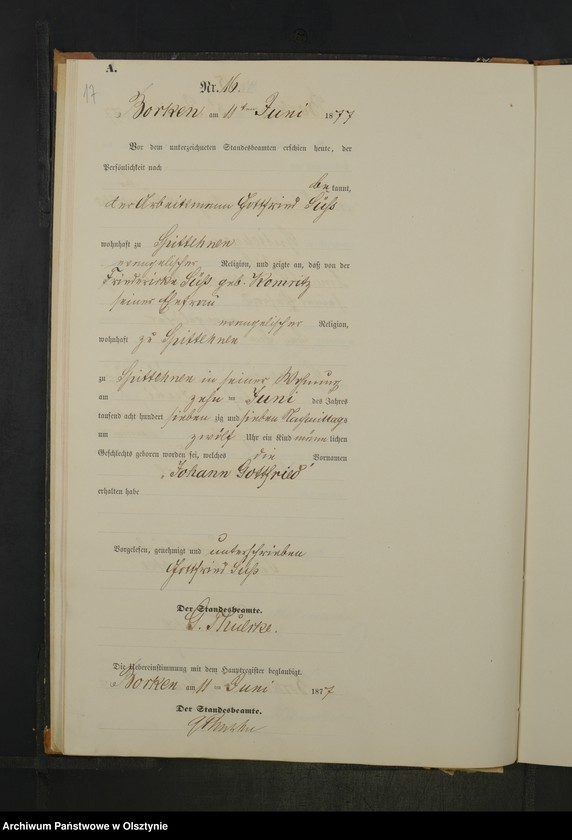 A.
17
Nr. 16.
Borken am 11ten Juni 1877
Vor dem unterzeichneten Standesbeamten erschien heute, der
Persönlichkeit nach
be kannt,
der Arbeitsmann Gottfried Süß
wohnhaft zu Spittehnen
evangelischer Religion, und zeigte an, daß von der
Friederike Süß geb. Komritz
seiner Ehefrau
evangelischer Religion,
wohnhaft zu Spittehnen
zu Spittehnen in seiner Wohnung
am zehn = Juni des Jahres
tausend acht hundert sieben zig und sieben Nachmittags
um zwölf Uhr ein Kind männ lichen
Geschlechts geboren worden sei, welches die Vornamen
„Johann Gottfried“
erhalten habe
Vorgelesen, genehmigt und unterschrieben
Gottfried Süß
Der Standesbeamte.
G.
Die Uebereinstimmung mit dem Hauptregister beglaubigt.
Borken am 11 = Juni 1877
Der Standesbeamte.
Archiwum Państwowe w Olsztynie